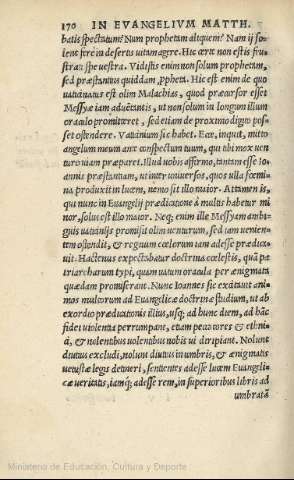 170 IN EVANGELIVM MATTH.
batis spectatum? Num prophetam aliquem? Nam ij so-
lent ferè in desertis uitam agere. Hic certè non estis fru-
strati spe uestra. Vidistis enim non solum prophetam,
sed præstantius quiddam propheta. Hic est enim de quo
uaticinatus est olim Malachias, quod præcursor esset
Messyæ iam aduentantis, ut non solum in longum illum
oraculo promitteret, sed etiam de proximo digito pos-
set ostendere. Vaticinium sic habet. Ecce, inquit, mitto
angelum meum ante conspectum tuum, qui tibi mox uen
turo uiam præparet. Illud uobis affirmo, tantam esse Io-
annis præstantiam, ut inter uniuersos, quos ulla fœmi-
na produxit in lucem, nemo sit illo maior. Attamen is,
qui nunc in Euangelij prædicatione à multis habetur mi
nor, solus est illo maior. Neque enim ille Messyam ambi-
guis uaticinijs promisit olim uenturum, sed iam uenien-
tem ostendit, & regnum cœlorum iam adesse prædica-
uit. Hactenus expectabatur doctrina cœlestis, quã pa
triarcharum typi, quam uatum oracula per ænigmata
quædam promiserant. Nunc Ioannes sic excitauit ani-
mos multorum ad Euangelicæ doctrinæ studium, ut ab
exordio prædicationis illius, usque ad hunc diem, ad hãc
fidei uiolentia perrumpant, etiam peccatores & ethni-
ci, & nolentibus uolentibus nobis ui deripiant. Nolunt
diutius excludi, nolunt diutius in umbris, & ænigmatis
uetustæ legis detineri, sentientes adesse lucem Euangeli-
cæ ueritatis, iamque adesse rem, in superioribus libris ad
umbratã
Ministerio de Educación, Cultura y Deporte